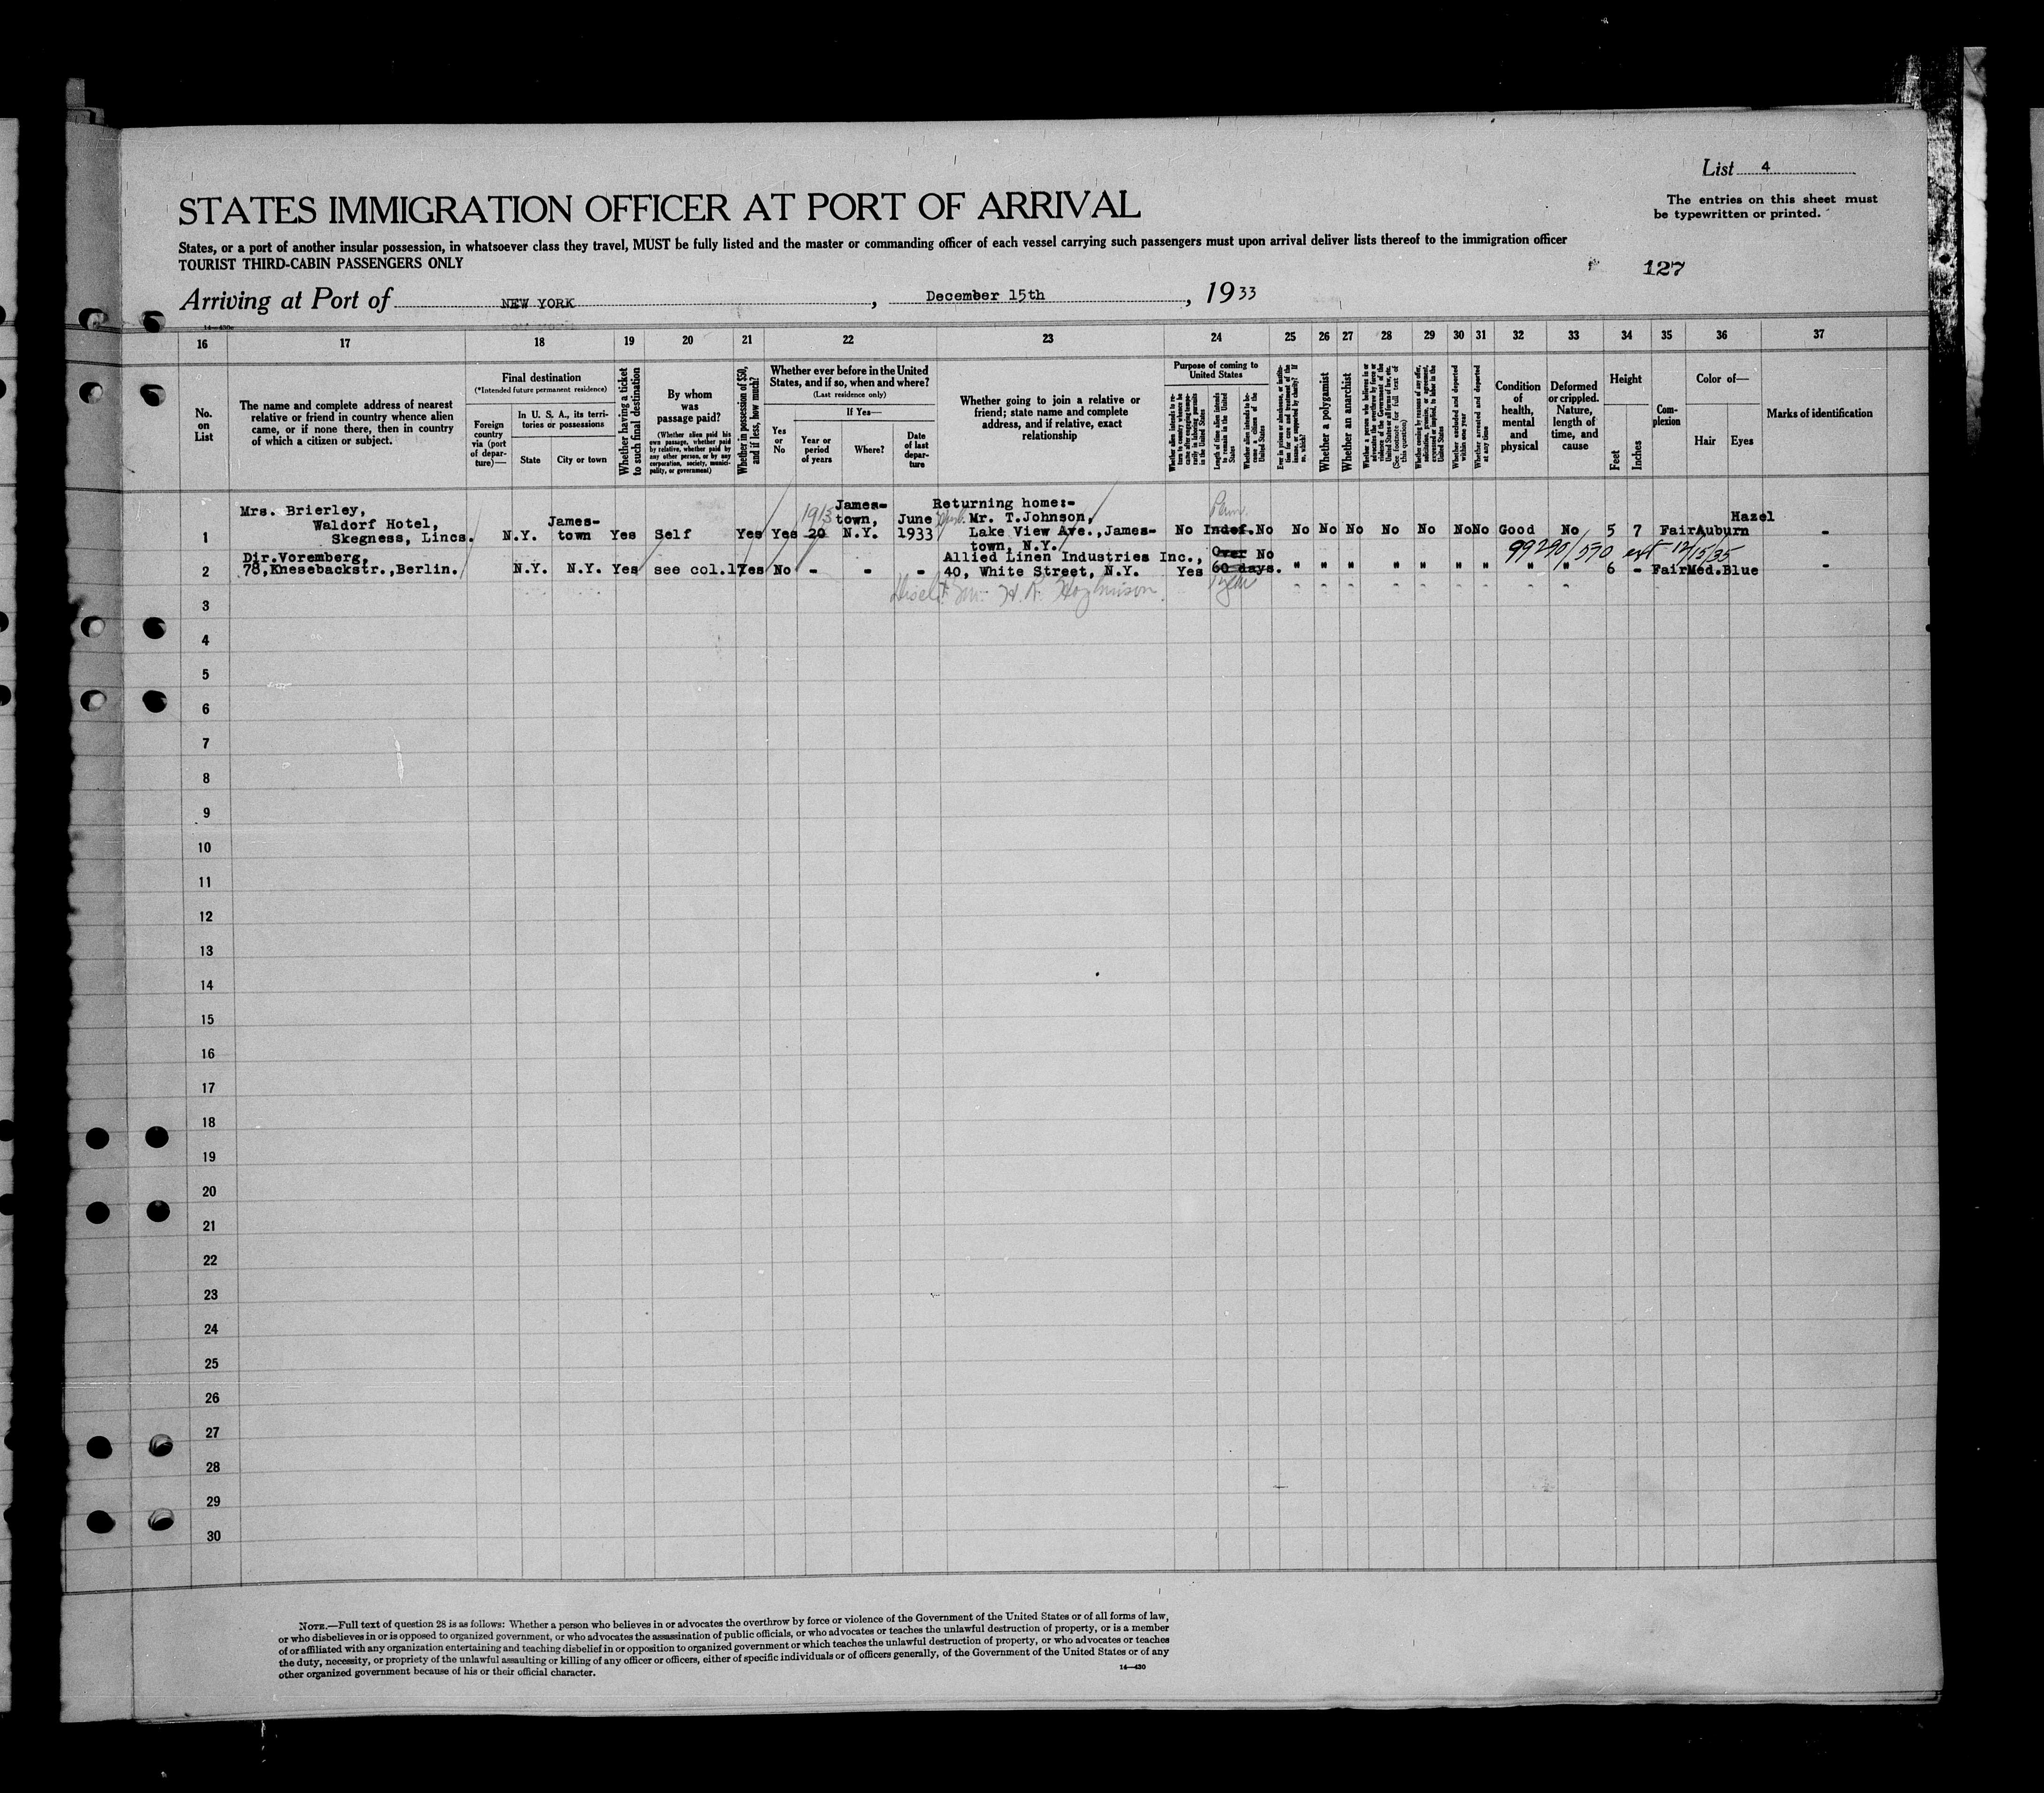 List 4
STATES IMMIGRATION OFFICER AT PORT OF ARRIVAL
The entries on this sheet must
be typewritten or printed.
States, or a port of another insular possession, in whatsoever class they travel, MUST be fully listed and the master or commanding officer of each vessel carrying such passengers must upon arrival deliver lists thereof to the immigration officer
TOURIST THIRD-CABIN PASSENGERS ONLY
127
Arriving at Port of NEW YORK, December 15th, 1933
14—430
16 17 18 19 20 21 22 23 24 25 26 27 28 29 30 31 32 33 34 35 36 37
No.
on
List
The name and complete address of nearest
relative or friend in country whence alien
came, or if none there, then in country
of which a citizen or subject.
Final destination
(*Intended future permanent residence)
Foreign
country
via (port
of depar-
ture)—
In U. S. A., its terri-
tories or possessions
State
City or town
Whether having a ticket
to such final destination
By whom
was
passage paid?
(Whether alien paid his
own passage, whether paid
by relative, whether paid by
any other person, or by any
corporation, society, munici-
pality, or government)
Whether in possession of $50,
and if less, how much?
Whether ever before in the United
States, and if so, when and where?
(Last residence only)
Yes
or
No
If Yes—
Year or
period
of years
Where?
Date
of last
depar-
ture
Whether going to join a relative or
friend; state name and complete
address, and if relative, exact
relationship
Purpose of coming to
United States
Whether alien intends to re-
turn to country whence he
came after engaging tempo-
rarily in laboring pursuits
in the United States
Length of time alien intends
to remain in the United
States
Whether alien intends to be-
come a citizen of the
United States
Ever in prison or almshouse, or institu-
tion for care and treatment of the
insane, or supported by charity? If
so, which?
Whether a polygamist
Whether an anarchist
Whether a person who believes in or
advocates the overthrow by force or
violence of the Government of the
United States or all forms of law, etc.
(See footnote for full text of
this question)
Whether coming by reason of any offer,
solicitation, promise, or agreement,
expressed or implied, to labor in the
United States
Whether excluded and deported
within one year
Whether arrested and deported
at any time
Condition
of
health,
mental
and
physical
Deformed
or crippled.
Nature,
length of
time, and
cause
Height
Feet
Inches
Com-
plexion
Color of—
Hair
Eyes
Marks of identification
1
Mrs. Brierley,
Waldorf Hotel,
Skegness, Lincs.
N.Y.
James-
town
Yes
Self
Yes
Yes
1913
20
James-
town,
N.Y.
June
1933
Returning home:-
Mr. T.Johnson,
Lake View Ave.,James-
town, N.Y.
No
Perm.
Indef. No No No No No No No No Good No 5 7 Fair Auburn Hazel -
99290/590 ext 12/15/35
2
Dir.Voremberg,
78,Knesebackstr.,Berlin.
N.Y. N.Y. Yes see col.17 Yes No - - -
Allied Linen Industries Inc.,
40, White Street, N.Y.
Yes
Over
60 days.
No " " " " " " " " " 6 - Fair Med. Blue -
1 year
3
4
5
6
7
8
9
10
11
12
13
14
15
16
17
18
19
20
21
22
23
24
25
26
27
28
29
30
NOTE.—Full text of question 28 is as follows: Whether a person who believes in or advocates the overthrow by force or violence of the Government of the United States or of all forms of law,
or who disbelieves in or is opposed to organized government, or who advocates the assassination of public officials, or who advocates or teaches the unlawful destruction of property, or is a member
of or affiliated with any organization entertaining and teaching disbelief in or opposition to organized government or which teaches the unlawful destruction of property, or who advocates or teaches
the duty, necessity, or propriety of the unlawful assaulting or killing of any officer or officers, either of specific individuals or of officers generally, of the Government of the United States or of any
other organized government because of his or their official character.
14—430